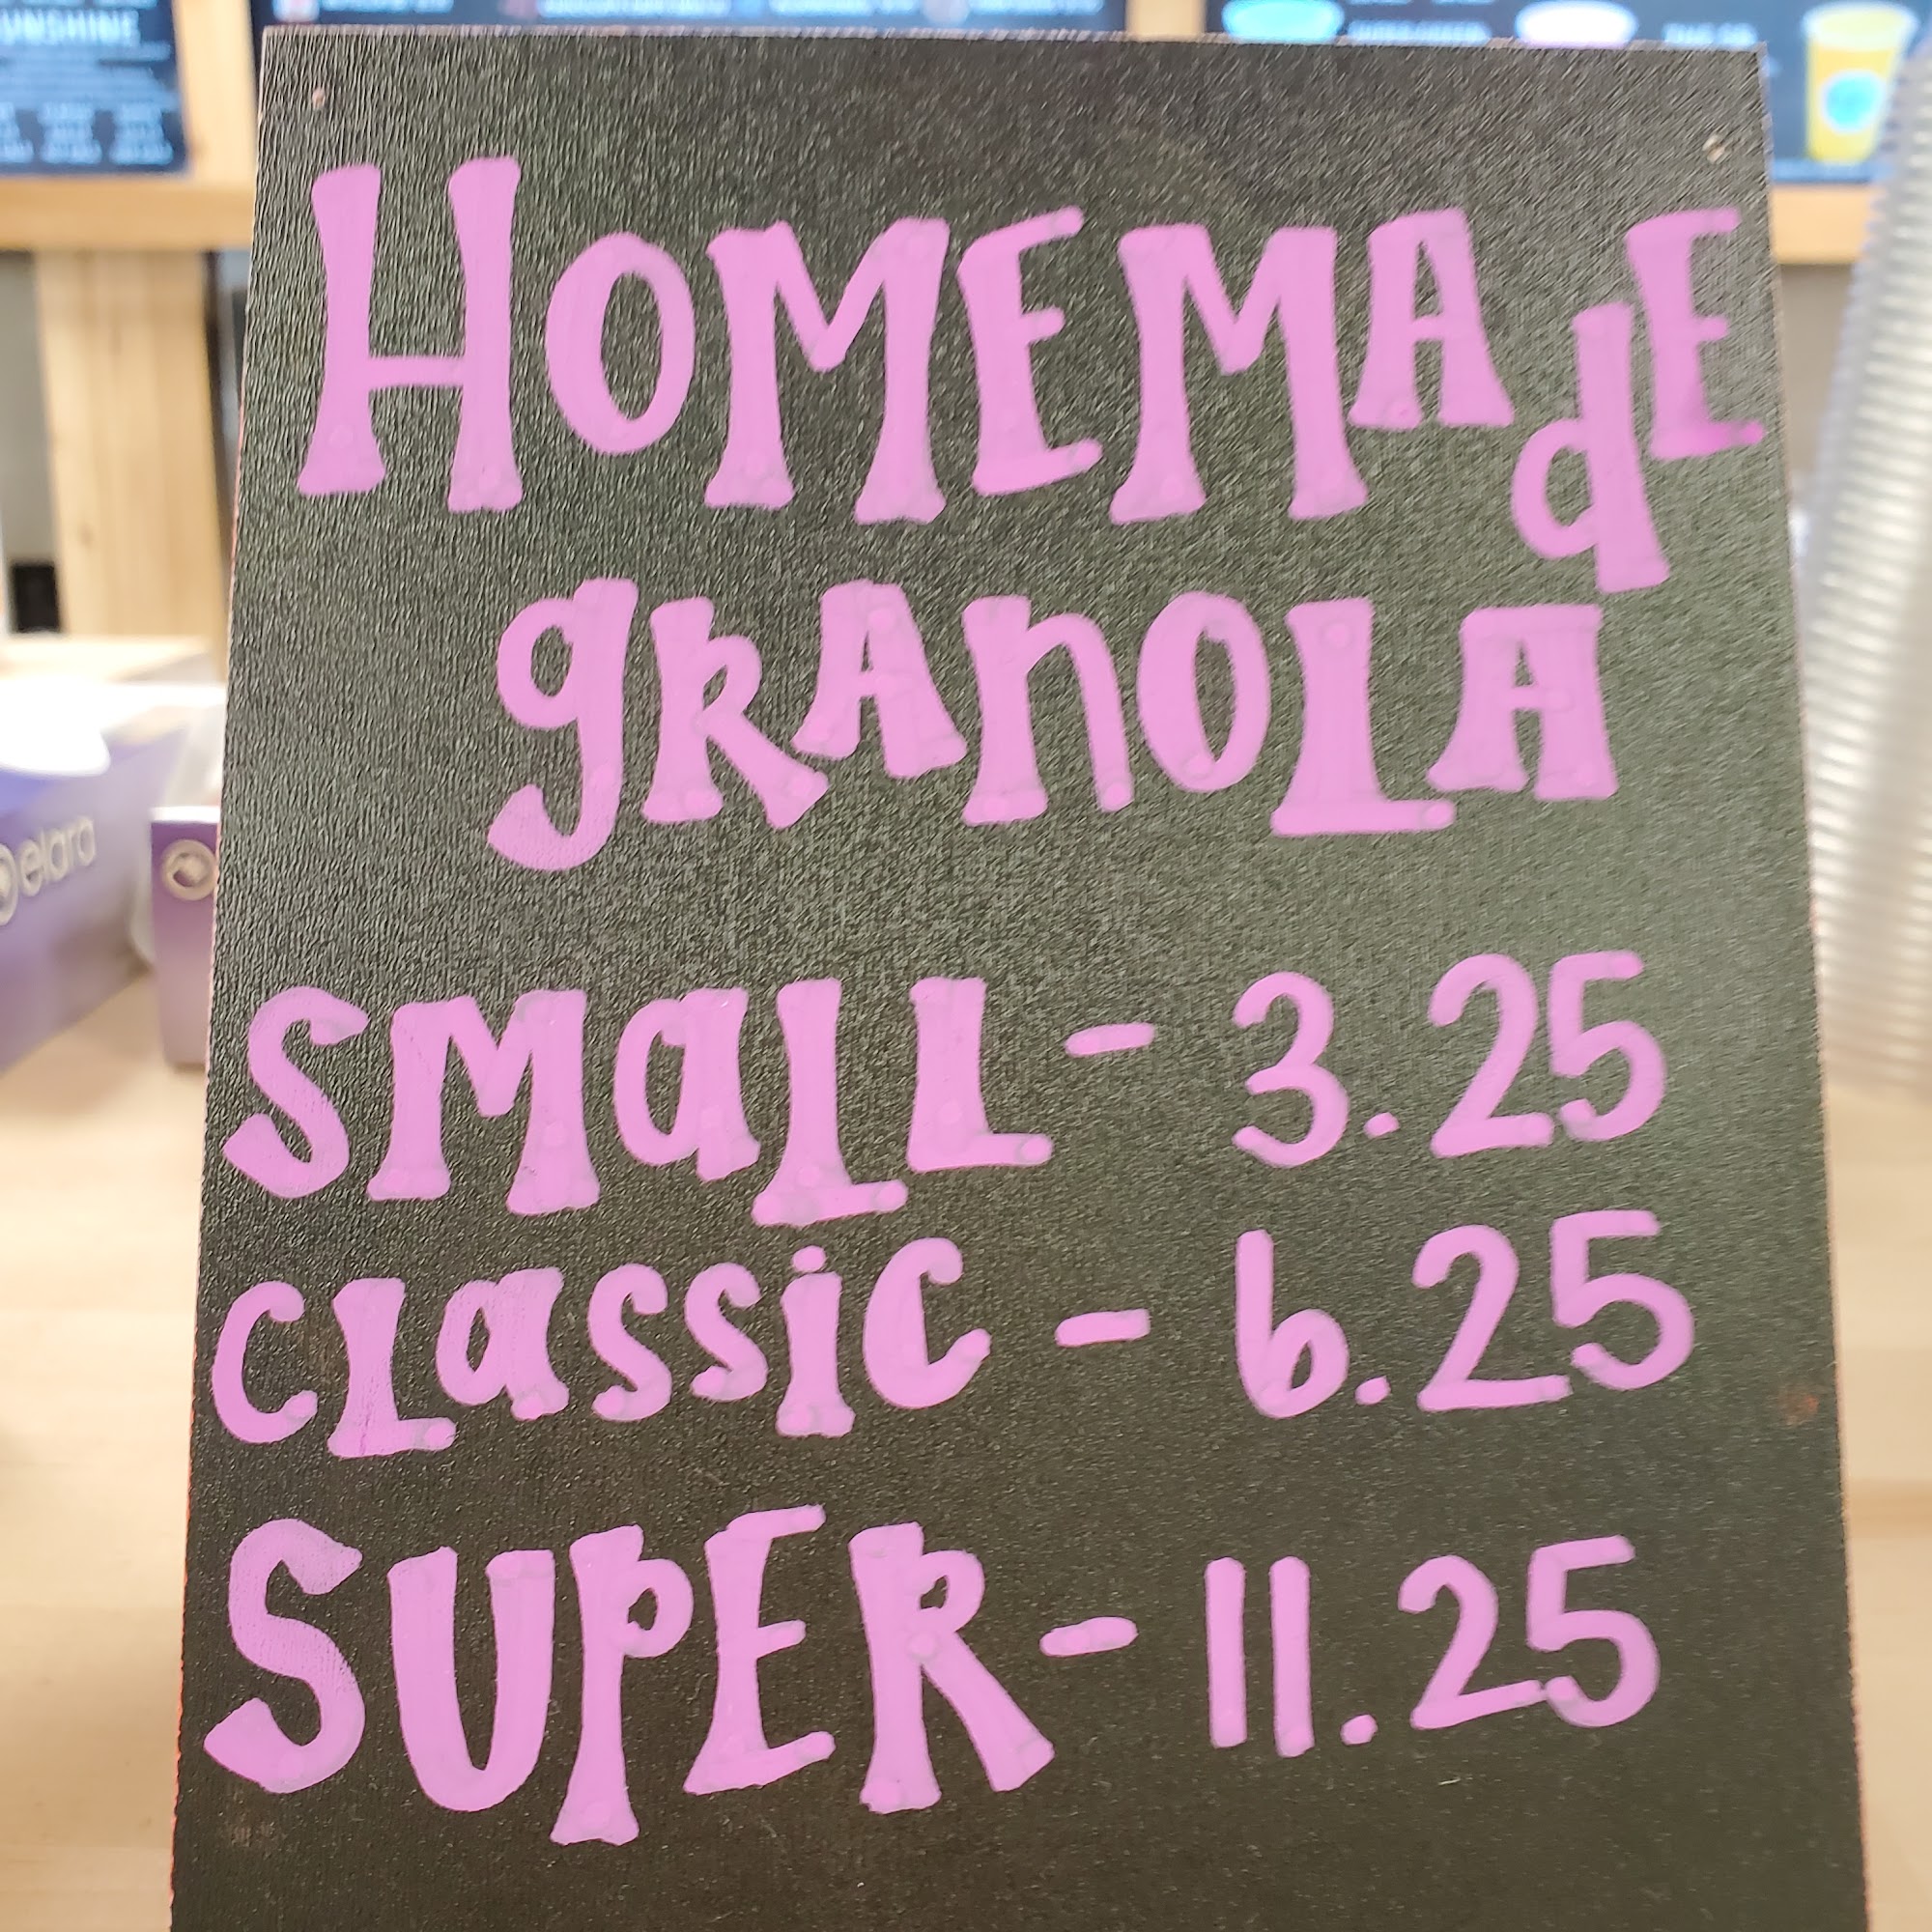 UNSHINE
HOMEMAdE
gRAnOLA
SMaLL - 3.25
CLassiC - 6.25
SUPER - 11.25
elara